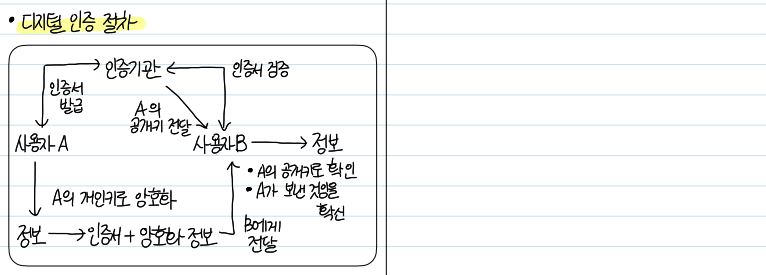 • 디지털 인증 절차
인증기관
인증서 검증
인증서
발급
A의
공개키 전달
사용자 A
사용자 B
정보
• A의 공개키로 확인
• A가 보낸 것임을
확신
A의 개인키로 암호화
정보
인증서 + 암호화 정보
B에게
전달